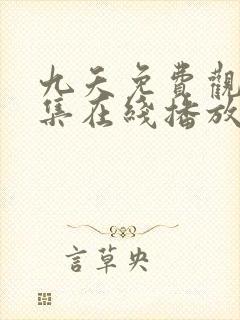 九天免費觀
集在綫播放
言草央